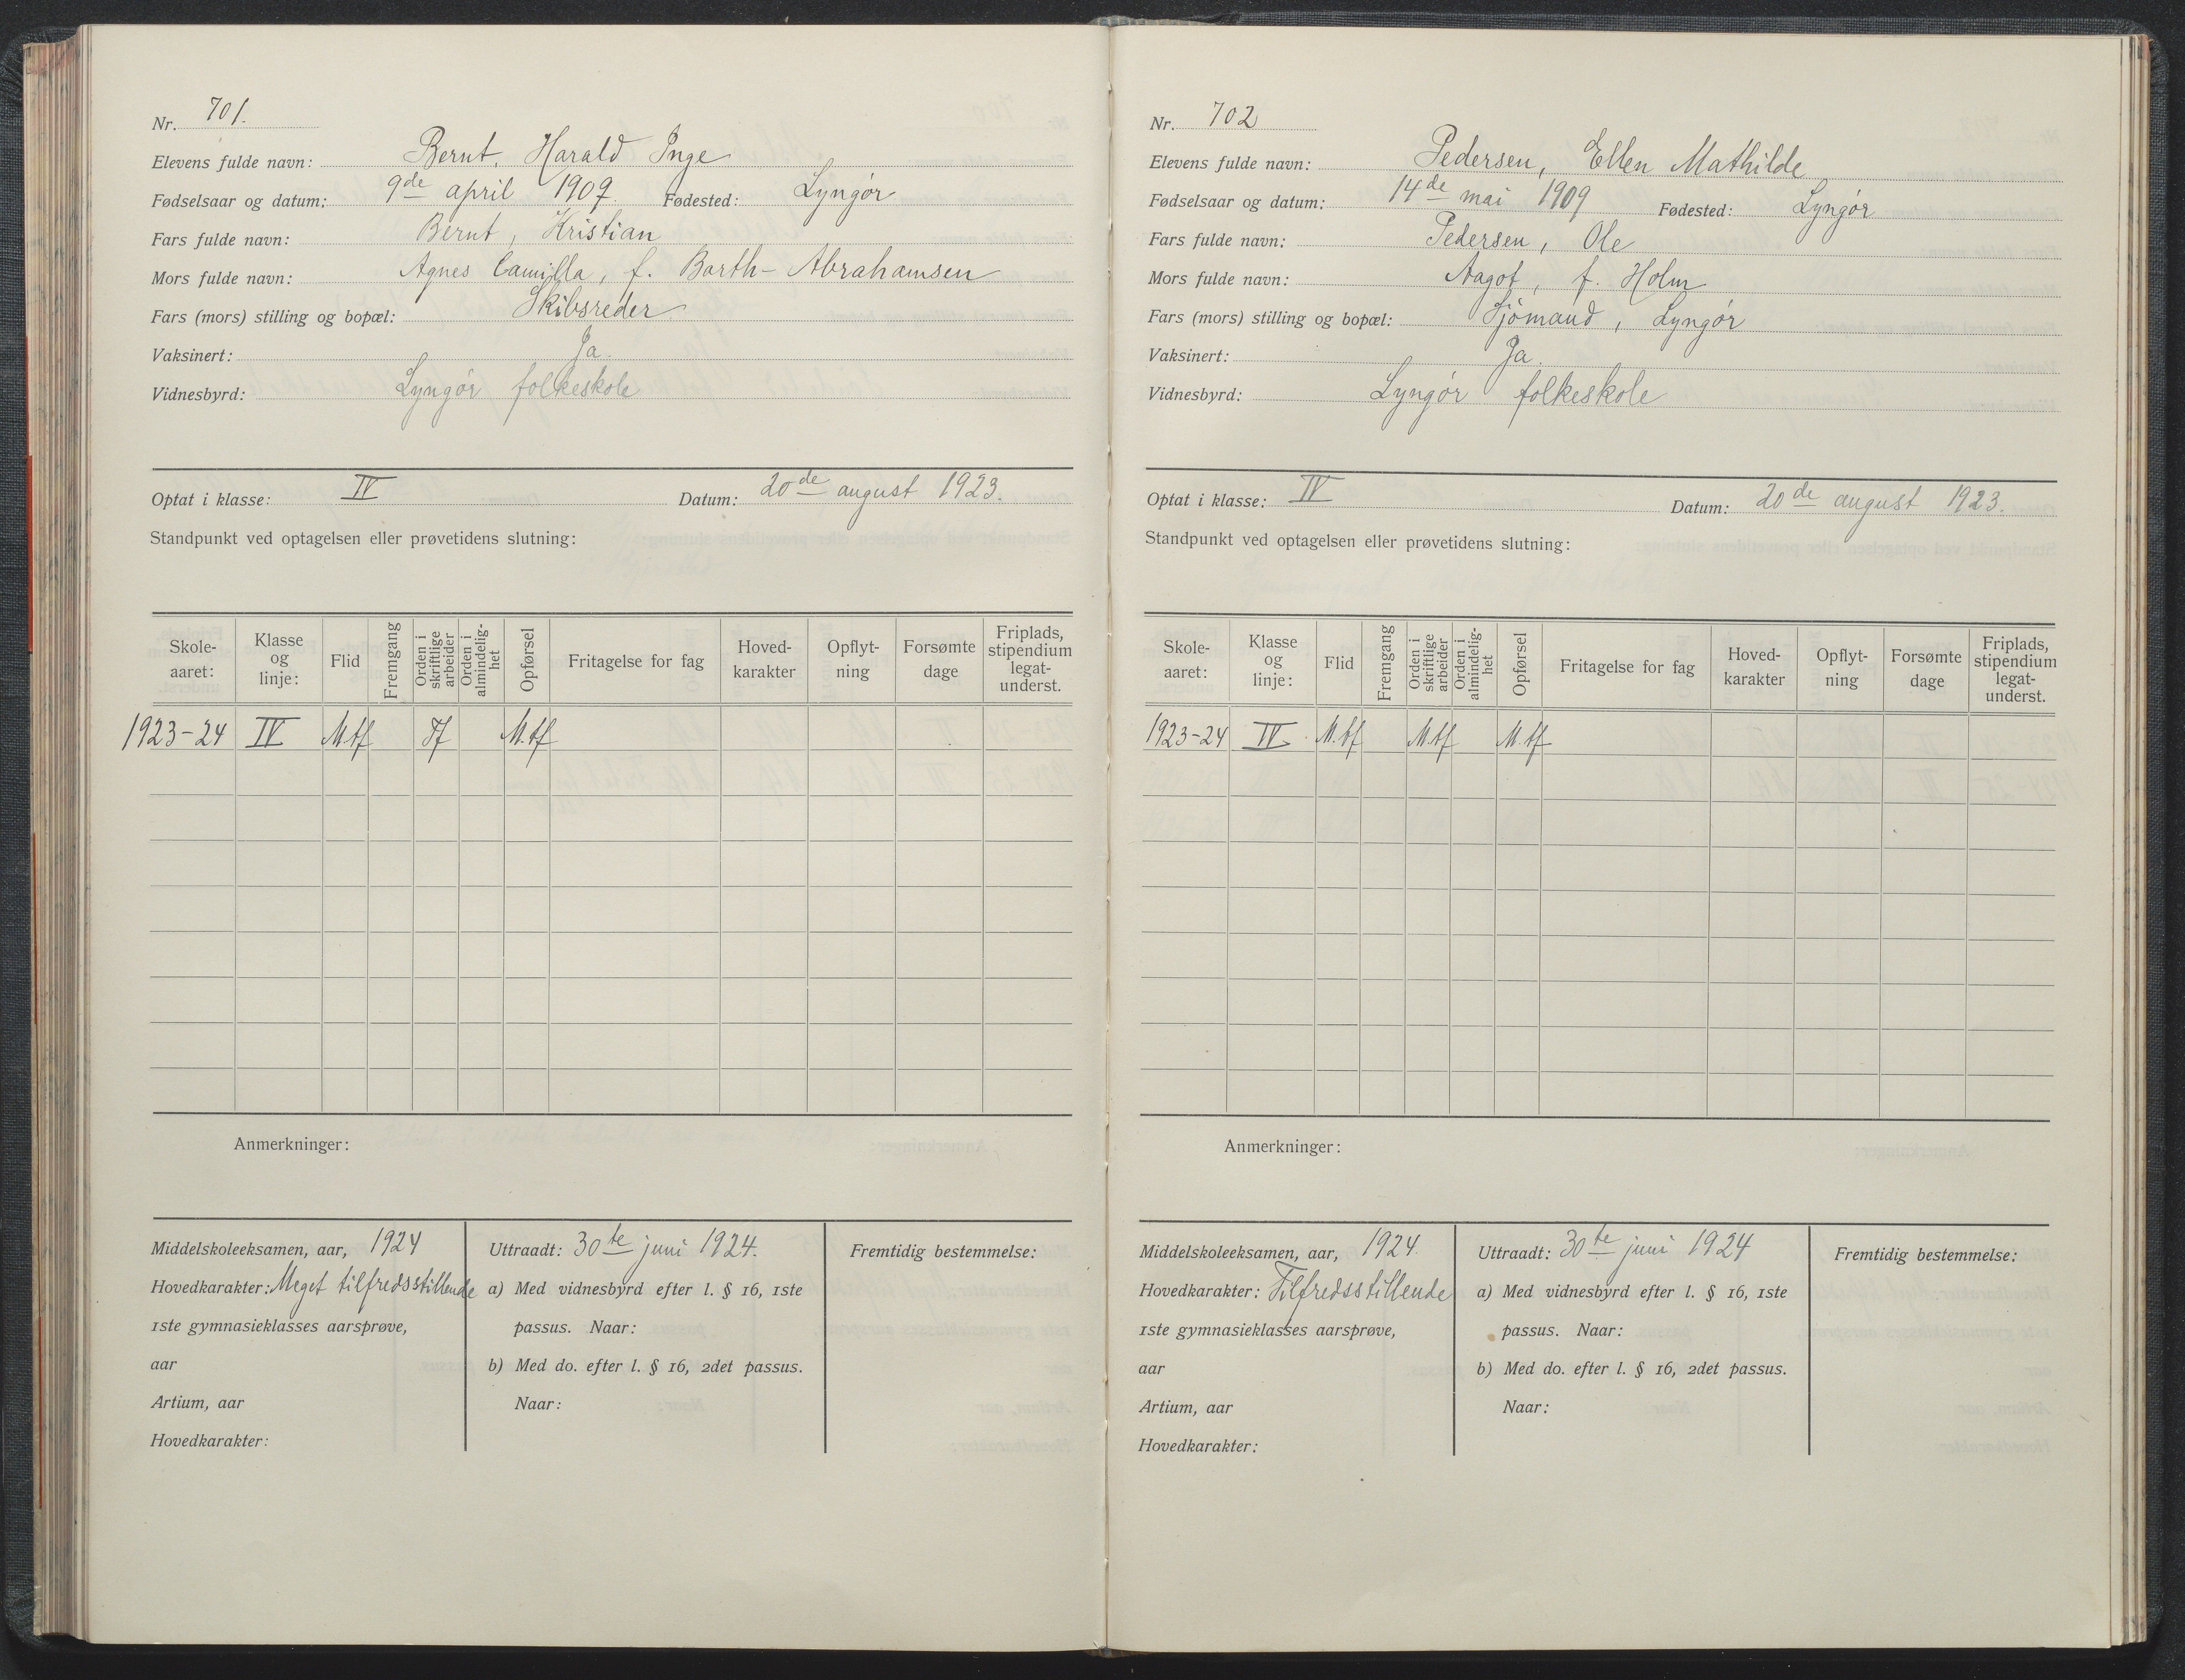 Nr. 701.
Elevens fulde navn: Bernt, Harald Inge
Fødselsaar og datum: 9de april 1909 Fødested: Lyngør
Fars fulde navn: Bernt, Kristian
Mors fulde navn: Agnes Camilla, f. Barth-Abrahamsen
Fars (mors) stilling og bopæl: Skibsreder
Vaksinert: Ja.
Vidnesbyrd: Lyngør folkeskole
Optat i klasse: IV Datum: 20de august 1923.
Standpunkt ved optagelsen eller prøvetidens slutning:
Skole-aaret: Klasse og linje: Flid Fremgang Orden i skriftlige arbeider Orden i almindelig-het Opførsel Fritagelse for fag Hoved-karakter Opflyt-ning Forsømte dage Friplads, stipendium legat-underst.
1923-24 IV Mtf Tf M.tf
Anmerkninger:
Middelskoleeksamen, aar, 1924
Hovedkarakter: Meget tilfredsstillende
1ste gymnasieklasses aarsprøve,
aar
Artium, aar
Hovedkarakter:
Uttraadt: 30te juni 1924.
a) Med vidnesbyrd efter l. § 16, 1ste
passus. Naar:
b) Med do. efter l. § 16, 2det passus.
Naar:
Fremtidig bestemmelse:
Nr. 702
Elevens fulde navn: Pedersen, Ellen Mathilde
Fødselsaar og datum: 14de mai 1909 Fødested: Lyngør
Fars fulde navn: Pedersen, Ole
Mors fulde navn: Aagot, f. Holm
Fars (mors) stilling og bopæl: Sjømand, Lyngør
Vaksinert: Ja.
Vidnesbyrd: Lyngør folkeskole
Optat i klasse: IV Datum: 20de august 1923.
Standpunkt ved optagelsen eller prøvetidens slutning:
Skole-aaret: Klasse og linje: Flid Fremgang Orden i skriftlige arbeider Orden i almindelig-het Opførsel Fritagelse for fag Hoved-karakter Opflyt-ning Forsømte dage Friplads, stipendium legat-underst.
1923-24 IV M.tf M.tf M.tf
Anmerkninger:
Middelskoleeksamen, aar, 1924.
Hovedkarakter: Tilfredsstillende
1ste gymnasieklasses aarsprøve,
aar
Artium, aar
Hovedkarakter:
Uttraadt: 30te juni 1924
a) Med vidnesbyrd efter l. § 16, 1ste
passus. Naar:
b) Med do. efter l. § 16, 2det passus.
Naar:
Fremtidig bestemmelse: